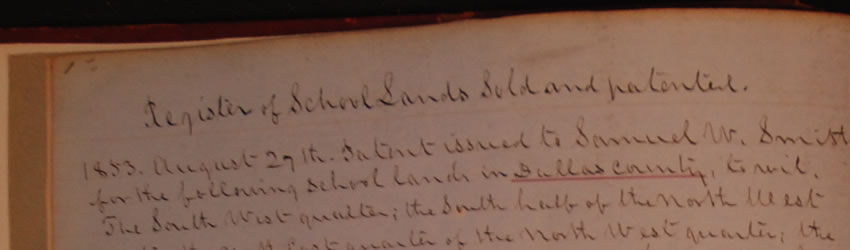 Register of School Lands Sold and patented.
1853. August 29th. Patent issued to Samuel W. Smith
for the following School lands in Dallas County, to wit.
The South West quarter; the South half of the North West
East quarter of the North West quarter; the